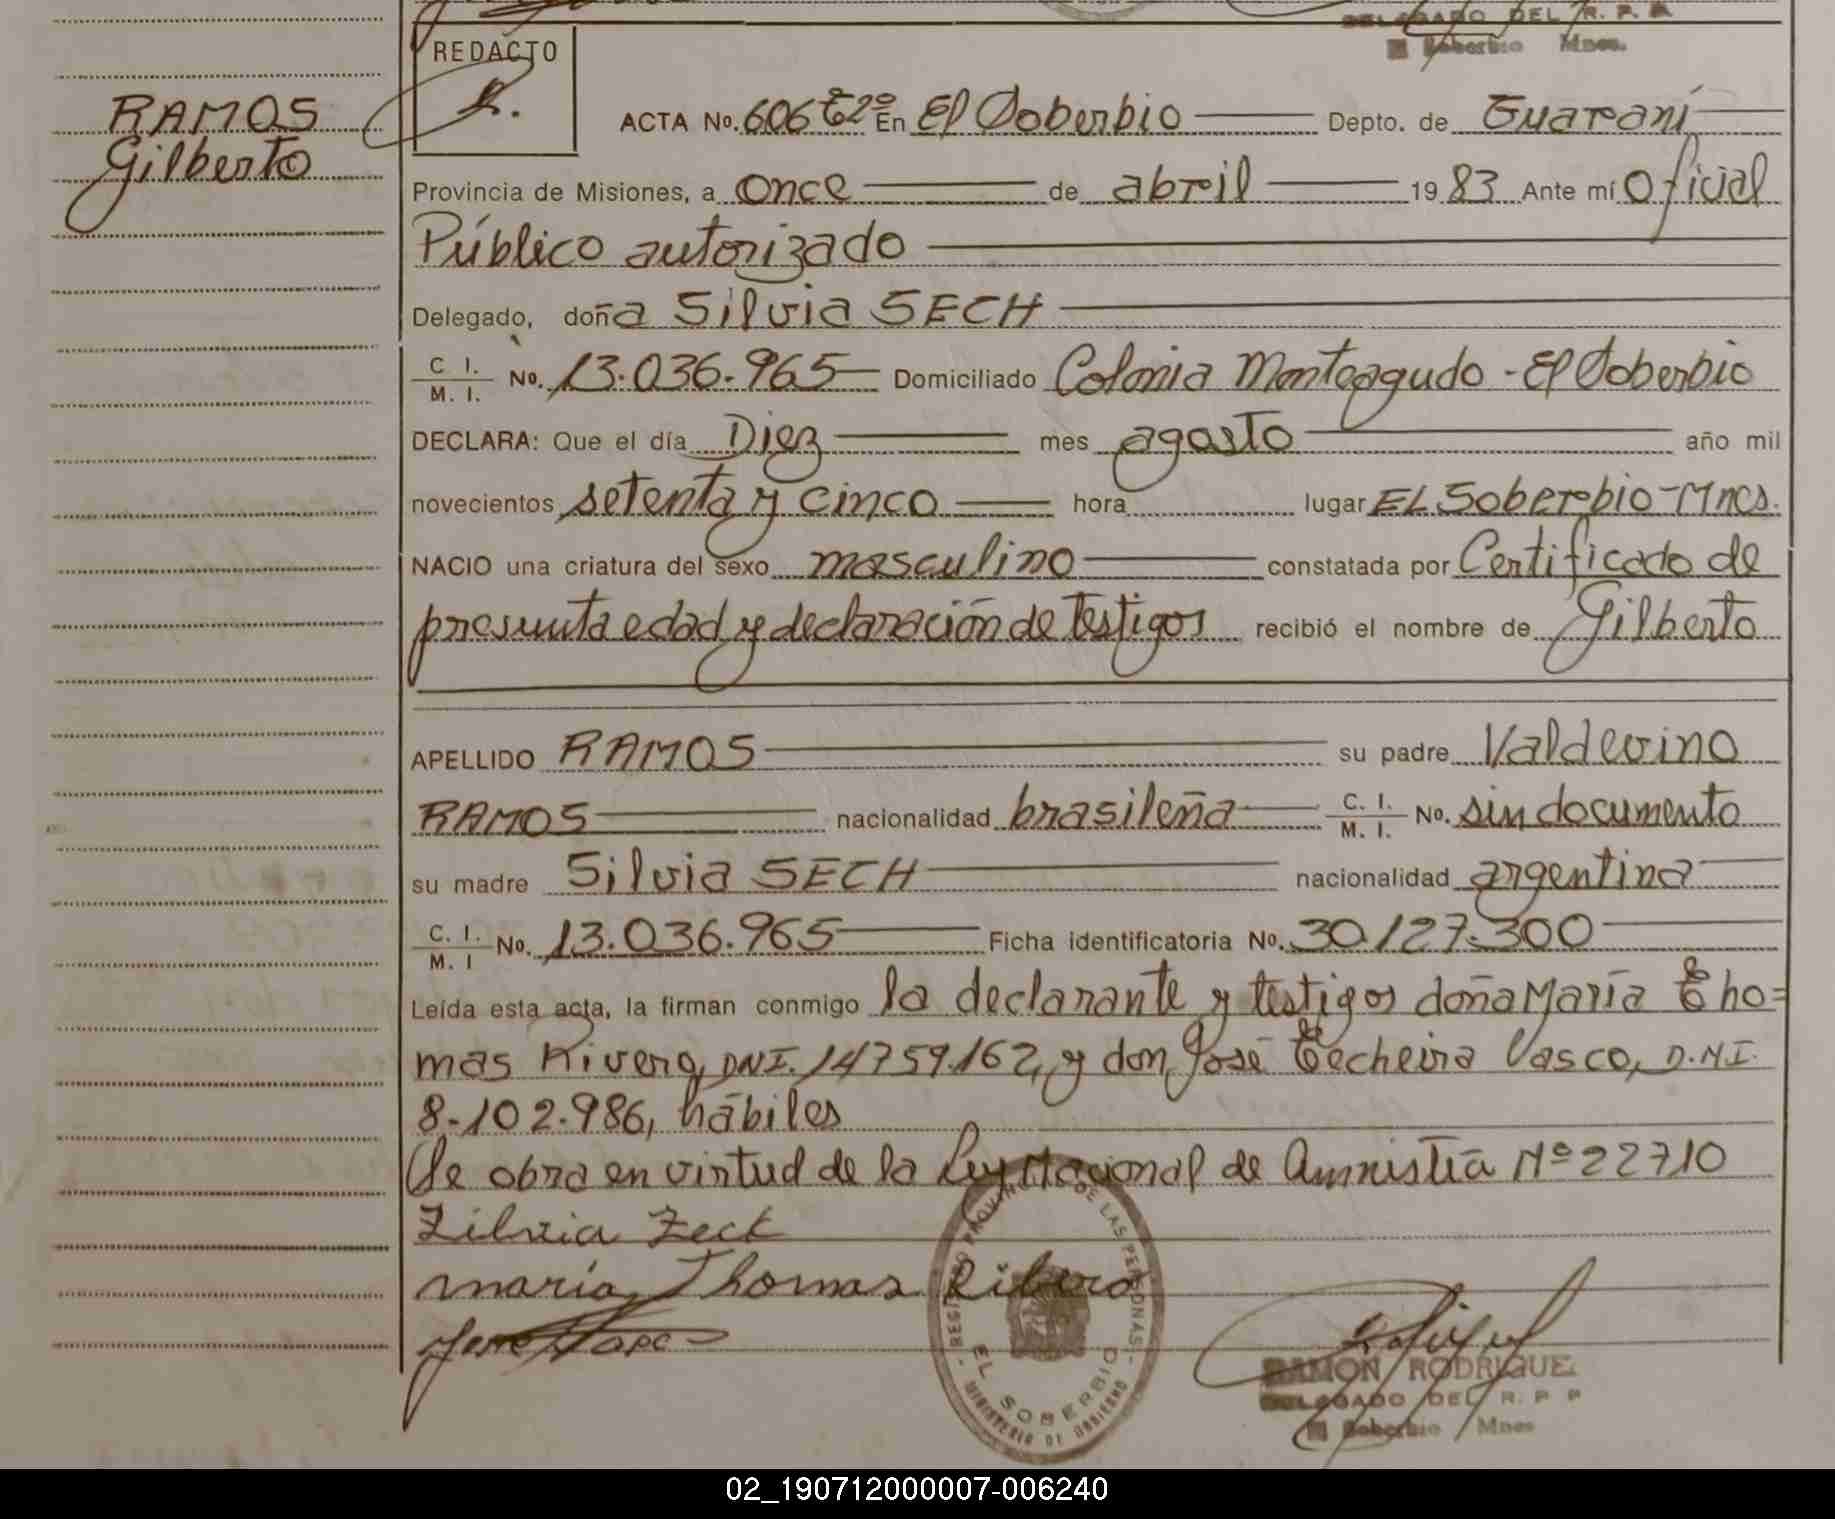 DELEGADO DEL R. P. P.
El Soberbio Mnes.
REDACTO
RAMOS
Gilberto
ACTA No. 606 Tº2º En El Soberbio Depto. de Guaraní
Provincia de Misiones, a once de abril 1983 Ante mí Oficial
Público autorizado
Delegado, doña Silvia SECH
C. I. / M. I. No. 13.036.965 Domiciliado Colonia Monteagudo - El Soberbio
DECLARA: Que el día Diez mes agosto año mil
novecientos setenta y cinco hora lugar EL Soberbio-Mnes.
NACIO una criatura del sexo masculino constatada por Certificado de
presunta edad y declaración de testigos recibió el nombre de Gilberto
APELLIDO RAMOS su padre Valdevino
RAMOS nacionalidad brasileña C. I. / M. I. No. sin documento
su madre Silvia SECH nacionalidad argentina
C. I. / M. I No. 13.036.965 Ficha identificatoria No. 30.127.300
Leída esta acta, la firman conmigo la declarante y testigos doña María Tho=
mas Rivero, DNI. 14759.162, y don José Techeira Vasco, D.N.I.
8.102.986, hábiles
Se obra en virtud de la Ley Nacional de Amnistía Nº 22710
Zilvia Zeck
maria Thomas Ribero
REGISTRO PROVINCIAL DE LAS PERSONAS - MINISTERIO DE GOBIERNO -
EL SOBERBIO
RAMON RODRIGUEZ
DELEGADO DEL R. P. P
El Soberbio Mnes
02_190712000007-006240